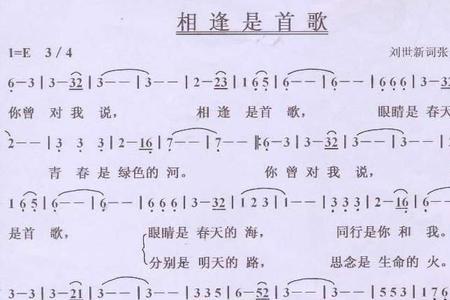 相逢是首歌
1=E 3/4 刘世新词张
6-3|3-32|3--|3--|2-23|1 6 5|6--|6--|6 6 6|3-
你曾 对我 说， 相逢 是首 歌， 眼睛是 春天
2--|3 3 3|2-16|7--|7--|:6-3|3-32|3--|3--|
青春是 绿色的 河。 你曾 对我 说，
1 6 5|6--|6--|6 6 6|3-32|1 2 3|1--|2-16|6--|
是首 歌， 眼睛是 春天的 海， 同行是 你和 我。
分别是 明天的 路， 思念是 生命的 火。
3--|3-21|3--|3--|3 3 5|6-52|3--|3--|5 3 5|1 7 6